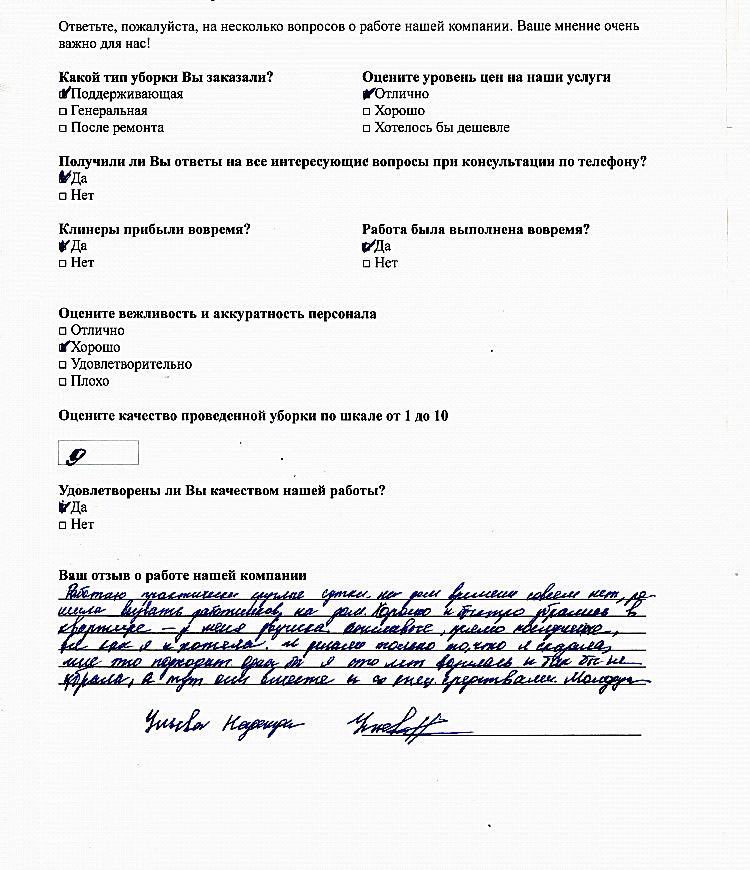 Ответьте, пожалуйста, на несколько вопросов о работе нашей компании. Ваше мнение очень
важно для нас!
Какой тип уборки Вы заказали?
Поддерживающая
Генеральная
После ремонта
Оцените уровень цен на наши услуги
Отлично
Хорошо
Хотелось бы дешевле
Получили ли Вы ответы на все интересующие вопросы при консультации по телефону?
Да
Нет
Клинеры прибыли вовремя?
Да
Нет
Работа была выполнена вовремя?
Да
Нет
Оцените вежливость и аккуратность персонала
Отлично
Хорошо
Удовлетворительно
Плохо
Оцените качество проведенной уборки по шкале от 1 до 10
9
Удовлетворены ли Вы качеством нашей работы?
Да
Нет
Ваш отзыв о работе нашей компании
Работаю практически круглые сутки, на дом времени совсем нет, ре-
шила вызвать работников на дом. Хорошо и быстро убрались в
квартире – у меня двушка.
все как я и хотела. и делали только то, что я сказала,
мне это подходит одна бы я сто лет возилась и так бы не
убрала, а тут они вместе и со спец. средствами. Молодцы
Надежда